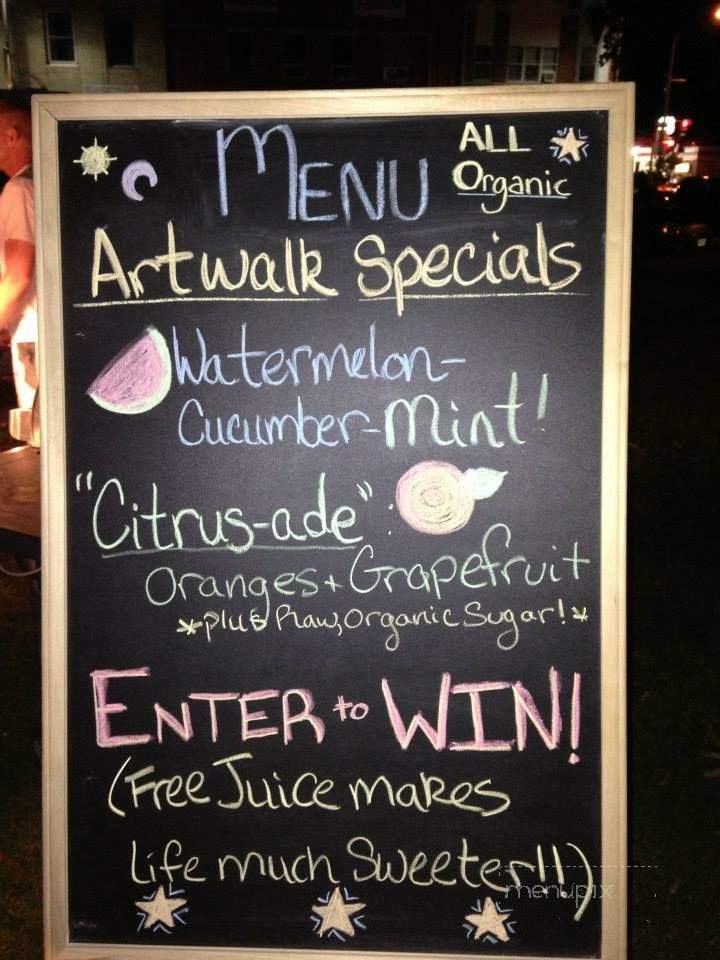 MENU
ALL
Organic
Artwalk Specials
Watermelon-
Cucumber-Mint!
"Citrus-ade":
Oranges + Grapefruit
*plus Raw, Organic Sugar!*
ENTER to WIN!
(Free Juice makes
Life much Sweeter!!)
menupix